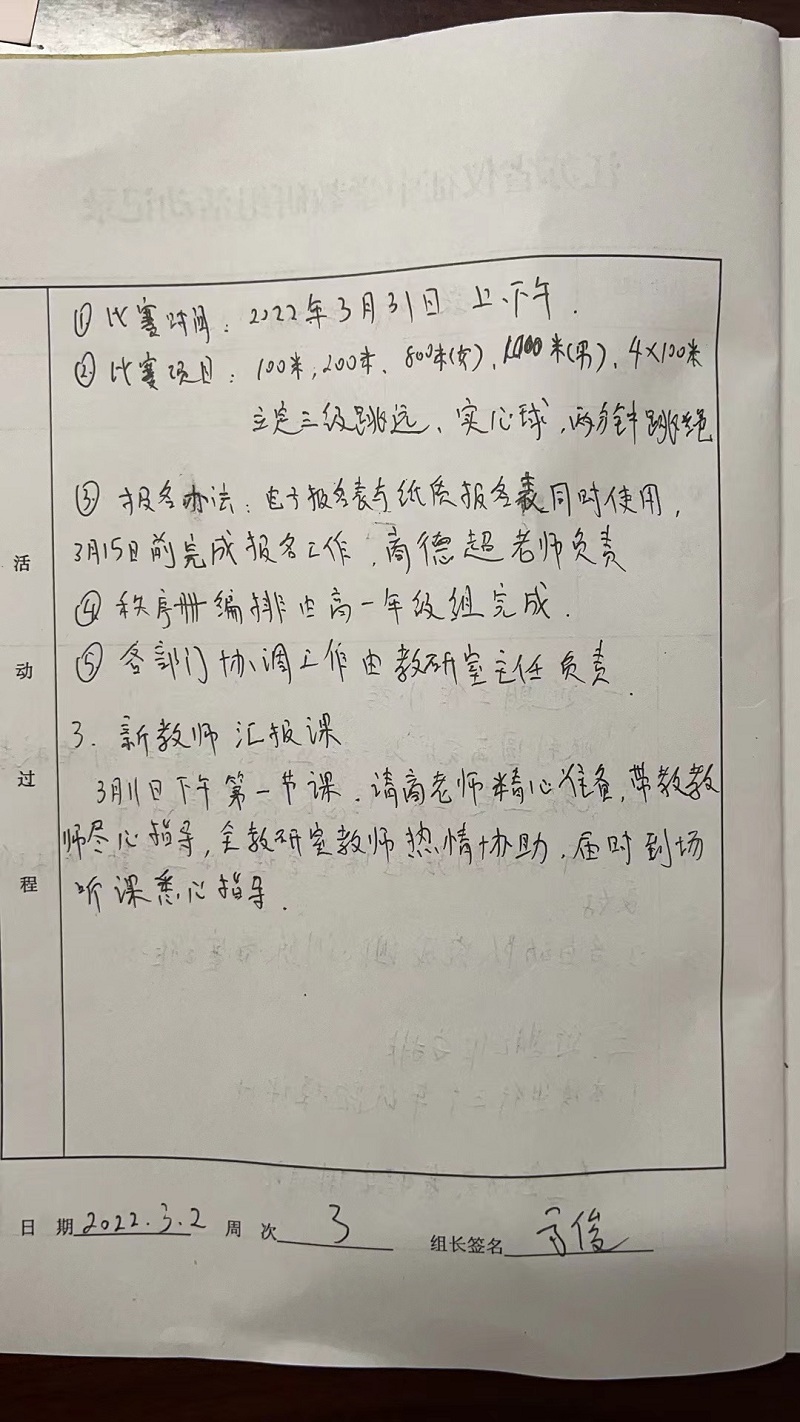 ① 比赛时间：2022年3月31日 上、下午.
② 比赛项目：100米, 200米、800米(女)、1000米(男)、4×100米
立定三级跳远、实心球, 两分钟跳绳
③ 报名办法：电子报名表与纸质报名表同时使用,
3月15日前完成报名工作, 高德超老师负责
④ 秩序册编排由高一年级组完成.
⑤ 各部门协调工作由教研室主任负责.
3. 新教师汇报课
3月11日下午第一节课. 请高老师精心准备, 带教教
师尽心指导, 全教研室教师热情协助, 届时到场
听课悉心指导.
活
动
过
程
日 期 2022.3.2 周 次 3 组长签名